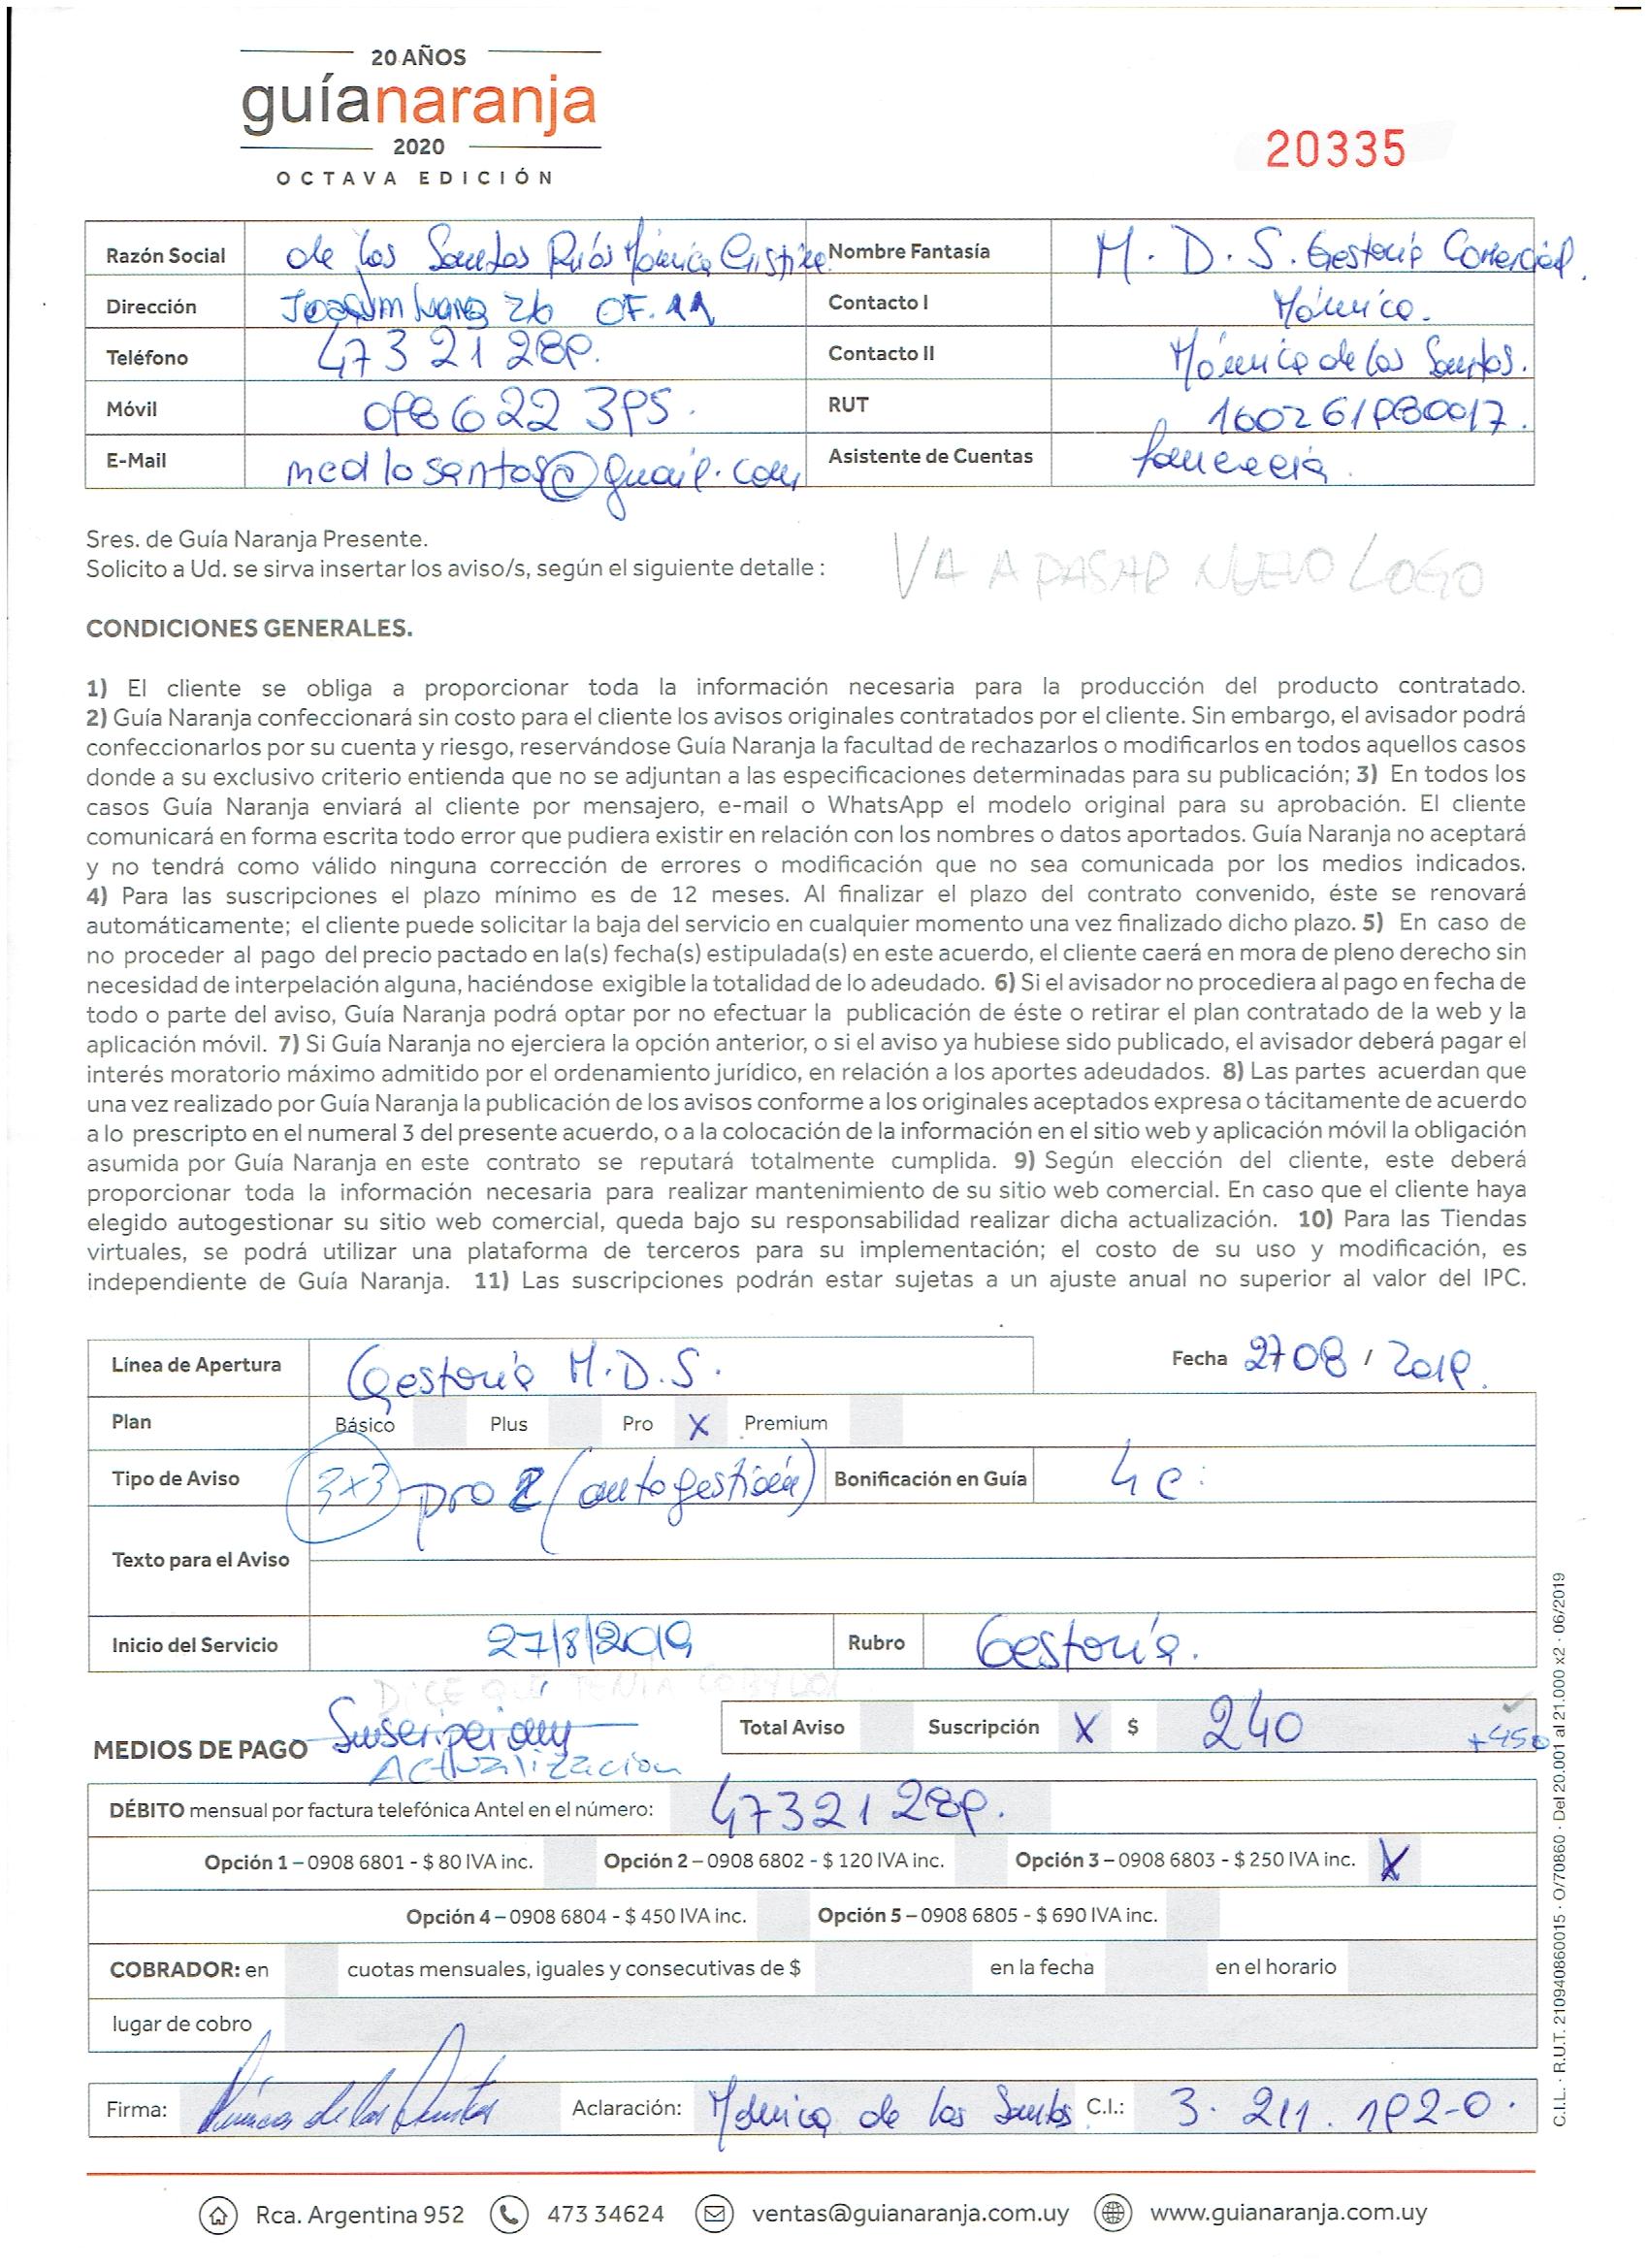 20 AÑOS
guíanaranja
2020
OCTAVA EDICIÓN
20335
Razón Social de los Santos Ríos Mónica Cristina Nombre Fantasía M. D. S. Gestoría Comercial.
Dirección Joaquim 26 OF. 11 Contacto I Mónica.
Teléfono 473 21 289. Contacto II Mónica de los Santos.
Móvil 098 622 395. RUT 160261980017.
E-Mail medlosantos@gmail.com Asistente de Cuentas
Sres. de Guía Naranja Presente.
Solicito a Ud. se sirva insertar los aviso/s, según el siguiente detalle :
VA A PASAR NUEVO LOGO
CONDICIONES GENERALES.
1) El cliente se obliga a proporcionar toda la información necesaria para la producción del producto contratado.
2) Guía Naranja confeccionará sin costo para el cliente los avisos originales contratados por el cliente. Sin embargo, el avisador podrá
confeccionarlos por su cuenta y riesgo, reservándose Guía Naranja la facultad de rechazarlos o modificarlos en todos aquellos casos
donde a su exclusivo criterio entienda que no se adjuntan a las especificaciones determinadas para su publicación; 3) En todos los
casos Guía Naranja enviará al cliente por mensajero, e-mail o WhatsApp el modelo original para su aprobación. El cliente
comunicará en forma escrita todo error que pudiera existir en relación con los nombres o datos aportados. Guía Naranja no aceptará
y no tendrá como válido ninguna corrección de errores o modificación que no sea comunicada por los medios indicados.
4) Para las suscripciones el plazo mínimo es de 12 meses. Al finalizar el plazo del contrato convenido, éste se renovará
automáticamente; el cliente puede solicitar la baja del servicio en cualquier momento una vez finalizado dicho plazo. 5) En caso de
no proceder al pago del precio pactado en la(s) fecha(s) estipulada(s) en este acuerdo, el cliente caerá en mora de pleno derecho sin
necesidad de interpelación alguna, haciéndose exigible la totalidad de lo adeudado. 6) Si el avisador no procediera al pago en fecha de
todo o parte del aviso, Guía Naranja podrá optar por no efectuar la publicación de éste o retirar el plan contratado de la web y la
aplicación móvil. 7) Si Guía Naranja no ejerciera la opción anterior, o si el aviso ya hubiese sido publicado, el avisador deberá pagar el
interés moratorio máximo admitido por el ordenamiento jurídico, en relación a los aportes adeudados. 8) Las partes acuerdan que
una vez realizado por Guía Naranja la publicación de los avisos conforme a los originales aceptados expresa o tácitamente de acuerdo
a lo prescripto en el numeral 3 del presente acuerdo, o a la colocación de la información en el sitio web y aplicación móvil la obligación
asumida por Guía Naranja en este contrato se reputará totalmente cumplida. 9) Según elección del cliente, este deberá
proporcionar toda la información necesaria para realizar mantenimiento de su sitio web comercial. En caso que el cliente haya
elegido autogestionar su sitio web comercial, queda bajo su responsabilidad realizar dicha actualización. 10) Para las Tiendas
virtuales, se podrá utilizar una plataforma de terceros para su implementación; el costo de su uso y modificación, es
independiente de Guía Naranja. 11) Las suscripciones podrán estar sujetas a un ajuste anual no superior al valor del IPC.
Línea de Apertura Gestoría M.D.S. Fecha 27 08 / 2019.
Plan Básico Plus Pro X Premium
Tipo de Aviso 3x3 pro 2 (autogestión) Bonificación en Guía 4c.
Texto para el Aviso
Inicio del Servicio 27/8/2019 Rubro Gestoría.
DICE QUE TENIA
Suscripción Total Aviso Suscripción X $ 240 +450
MEDIOS DE PAGO
Actualizacion
DÉBITO mensual por factura telefónica Antel en el número: 47321289.
Opción 1 – 0908 6801 - $ 80 IVA inc. Opción 2 – 0908 6802 - $ 120 IVA inc. Opción 3 – 0908 6803 - $ 250 IVA inc. X
Opción 4 – 0908 6804 - $ 450 IVA inc. Opción 5 – 0908 6805 - $ 690 IVA inc.
COBRADOR: en cuotas mensuales, iguales y consecutivas de $ en la fecha en el horario
lugar de cobro
Firma: Mónica de los Santos Aclaración: Mónica de los Santos C.I.: 3. 211. 192-0.
Rca. Argentina 952 473 34624 ventas@guianaranja.com.uy www.guianaranja.com.uy
C.I.L. · R.U.T. 210940860015 · O/70860 · Del 20.001 al 21.000 x2 · 06/2019